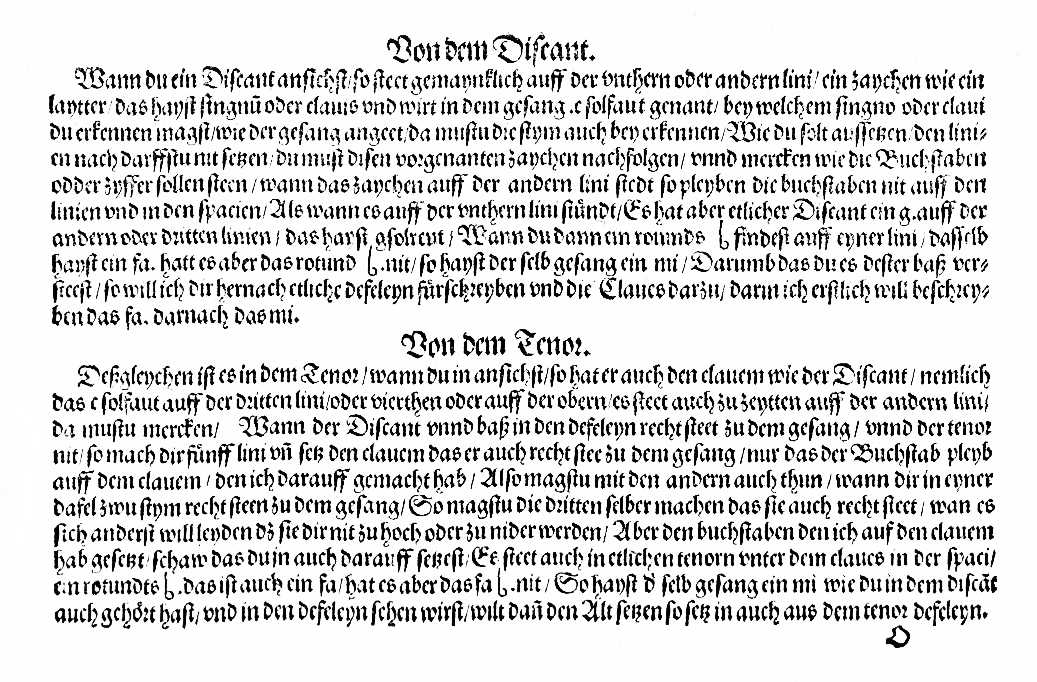 Von dem Discant.
Wann du ein Discant ansichst/ so steet gemaynklich auff der vnthern oder andern lini/ ein zaychen wie ein
laytter/ das hayst singnū oder clauis vnd wirt in dem gesang .c solfaut genant/ bey welchem singno oder claui
du erkennen magst/ wie der gesang angeet/ da mustu die stym auch bey erkennen/ Wie du solt aussetzen/ den lini⸗
en nach darffstu nit setzen/ du must disen vorgenanten zaychen nachfolgen/ vnnd mercken wie die Buchstaben
odder zyffer sollen steen/ wann das zaychen auff der andern lini stedt so pleyben die buchstaben nit auff den
linien vnd in den spacien/ Als wann es auff der vnthern lini stündt/ Es hat aber etlicher Discant ein g. auff der
andern oder dritten linien/ das hayst gsolreut/ Wann du dann ein rotunds b findest auff eyner lini/ dasselb
hayst ein fa. hatt es aber das rotund b .nit/ so hayst der selb gesang ein mi/ Darumb das du es dester baß ver⸗
steest/ so will ich dir hernach etliche defeleyn fürschreyben vnd die Claues darzu/ darin ich erstlich will beschrey⸗
ben das fa. darnach das mi.
Von dem Tenor.
Deßgleychen ist es in dem Tenor/ wann du in ansichst/ so hat er auch den clauem wie der Discant/ nemlich
das c solfaut auff der dritten lini/ oder vierthen oder auff der obern/ es steet auch zu zeytten auff der andern lini/
da mustu mercken/ Wann der Discant vnnd baß in den defeleyn recht steet zu dem gesang/ vnnd der tenor
nit/ so mach dir fünff lini vn̄ setz den clauem das er auch recht stee zu dem gesang/ nur das der Buchstab pleyb
auff dem clauem/ den ich darauff gemacht hab/ Also magstu mit den andern auch thun/ wann dir in eyner
dafel zwu stym recht steen zu dem gesang/ So magstu die dritten selber machen das sie auch recht steet/ wan es
sich anderst will leyden dz sie dir nit zu hoch oder zu nider werden/ Aber den buchstaben den ich auf den clauem
hab gesetzt/ schaw das du in auch darauff setzest/ Es steet auch in etlichen tenorn vnter dem claues in der spaci/
ein rotundts b .das ist auch ein fa/ hat es aber das fa b .nit/ So hayst d' selb gesang ein mi wie du in dem discāt
auch gehört hast/ vnd in den defeleyn sehen wirst/ wilt dañ den Alt setzen so setz in auch aus dem tenor defeleyn.
O